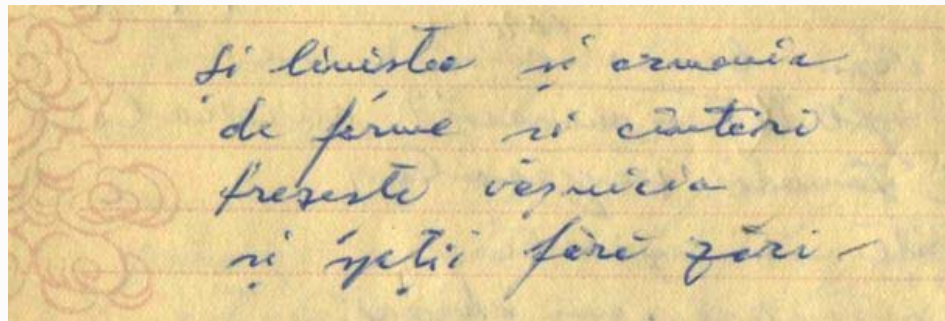 Și liniștea și armonia
de forme și cântări
frezește veșnicia
și spații fără zări -